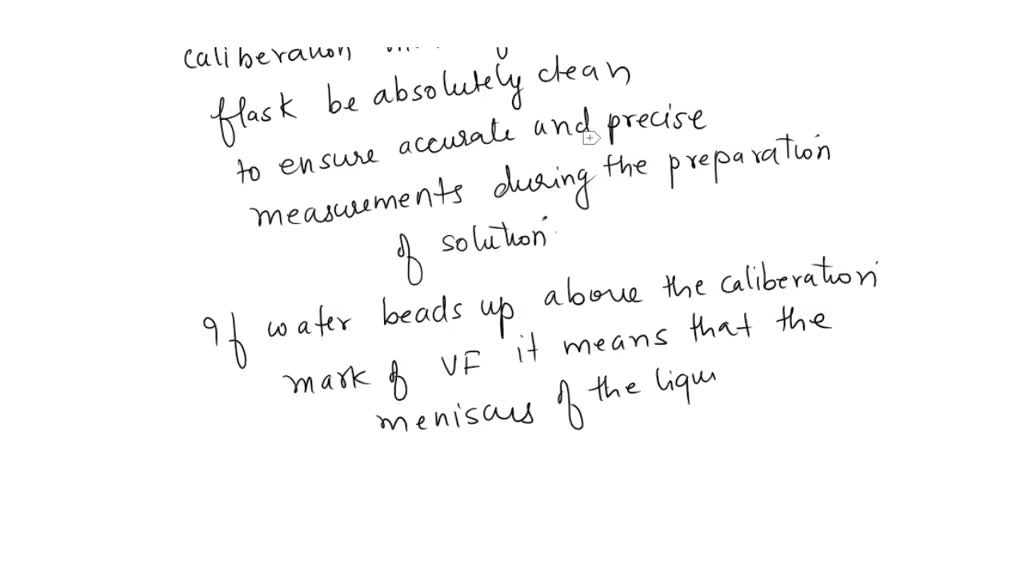 caliberation
flask be absolutely clean
to ensure accurate and precise
measurements during the preparation
of solution.
If water beads up above the caliberation
mark of VF it means that the
meniscus of the liqu